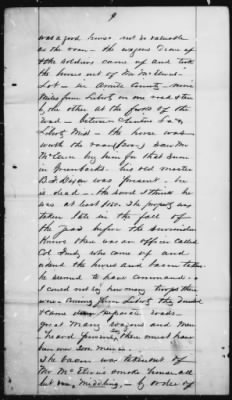 9
was a good horse not so valuable
as the roan — the wagons drove up
& the soldiers came up and took
the horse out of Mr McElwin's
Lot — in Amite County — nine
Miles from Liberty on one road & ten
by the other at the forks of the
road — between Clinton La &
Liberty Miss — the horse was
worth the
McElwin by him for that sum
in Greenbacks. his old master
was present — he
is dead — the horse I think he
was at least 1000. The property was
taken late in the fall of
the year before the surrender
Know there was an officer called
Col who came up and
asked the horse and bacon taken
he seemed to have command —
I could not say how many troops there
were. Coming from Liberty they divided
& came separate roads —
great many wagons and men
— heard firing, there must have
been over 200 men in
The bacon was taken out of
Mr McElwin's smoke house, all
but middling — by order of